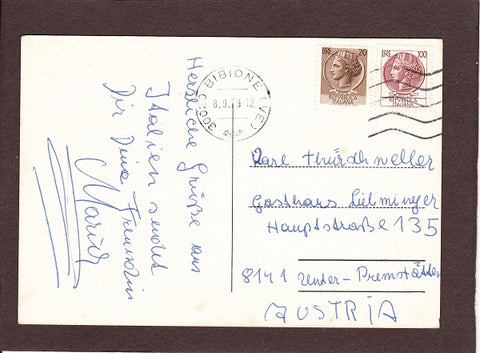 Herzliche Grüße aus
Italien sendet
Dir Deine Freundin
Maria
30020 BIBIONE (VE)
8.9.78-12
LIRE 20
REPUBBLICA
ITALIANA
LIRE 100
REPUBBLICA
ITALIANA
Gasthaus Liebminger
Hauptstraße 135
8141 Unter-Premstätten
AUSTRIA